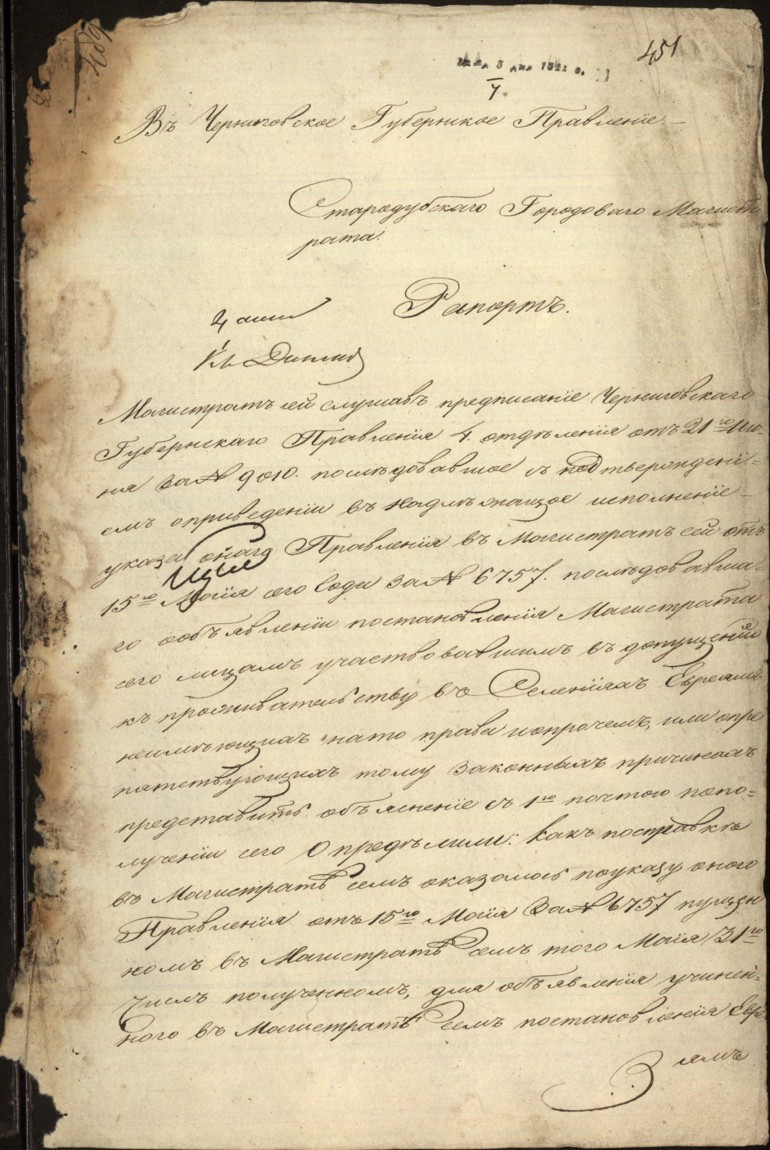 451
7.
Въ Черниговское Губернское Правленіе
Стародубскаго Городоваго Магист
рата.
Рапортъ.
Магистратъ сей слушавъ предписаніе Черниговскаго
Губернскаго Правленія 4. отдѣленія отъ 21го Ію
ня за № 9010. послѣдовавшое съ подтвержденi-
емъ оприведеніи въ надлѣжащое исполненіе
указа онаго Правленія въ Магистратъ сей отъ
15го Маія сего Года за № 6757. послѣдовавша-
го объявленіи постановленія Магистрата
сего лицамъ участвовавшимъ въ допущеніи
къ проживательству въ Селеніяхъ Евреямъ
неимѣющихъ нато права ипрочемъ, или опре
пятствующихъ тому законныхъ причинахъ
представить объясненіе съ 1ю почтою попо=
лученіи сего Опредѣлили: какъ посправкѣ
въ Магистратѣ семъ оказалось поуказу оного
Правленія отъ 15го Маія за № 6757 пущен
номъ въ Магистратѣ семъ того Маія 31го
Числъ полученномъ, для объявленія учинен-
ного въ Магистратѣ семъ постановленія Евре
ямъ